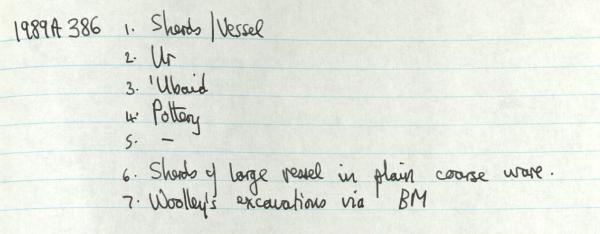 1989A 386 1. Sherds / Vessel
2. Ur
3. 'Ubaid
4. Pottery
5. –
6. Sherds of large vessel in plain coarse ware.
7. Woolley's excavations via BM